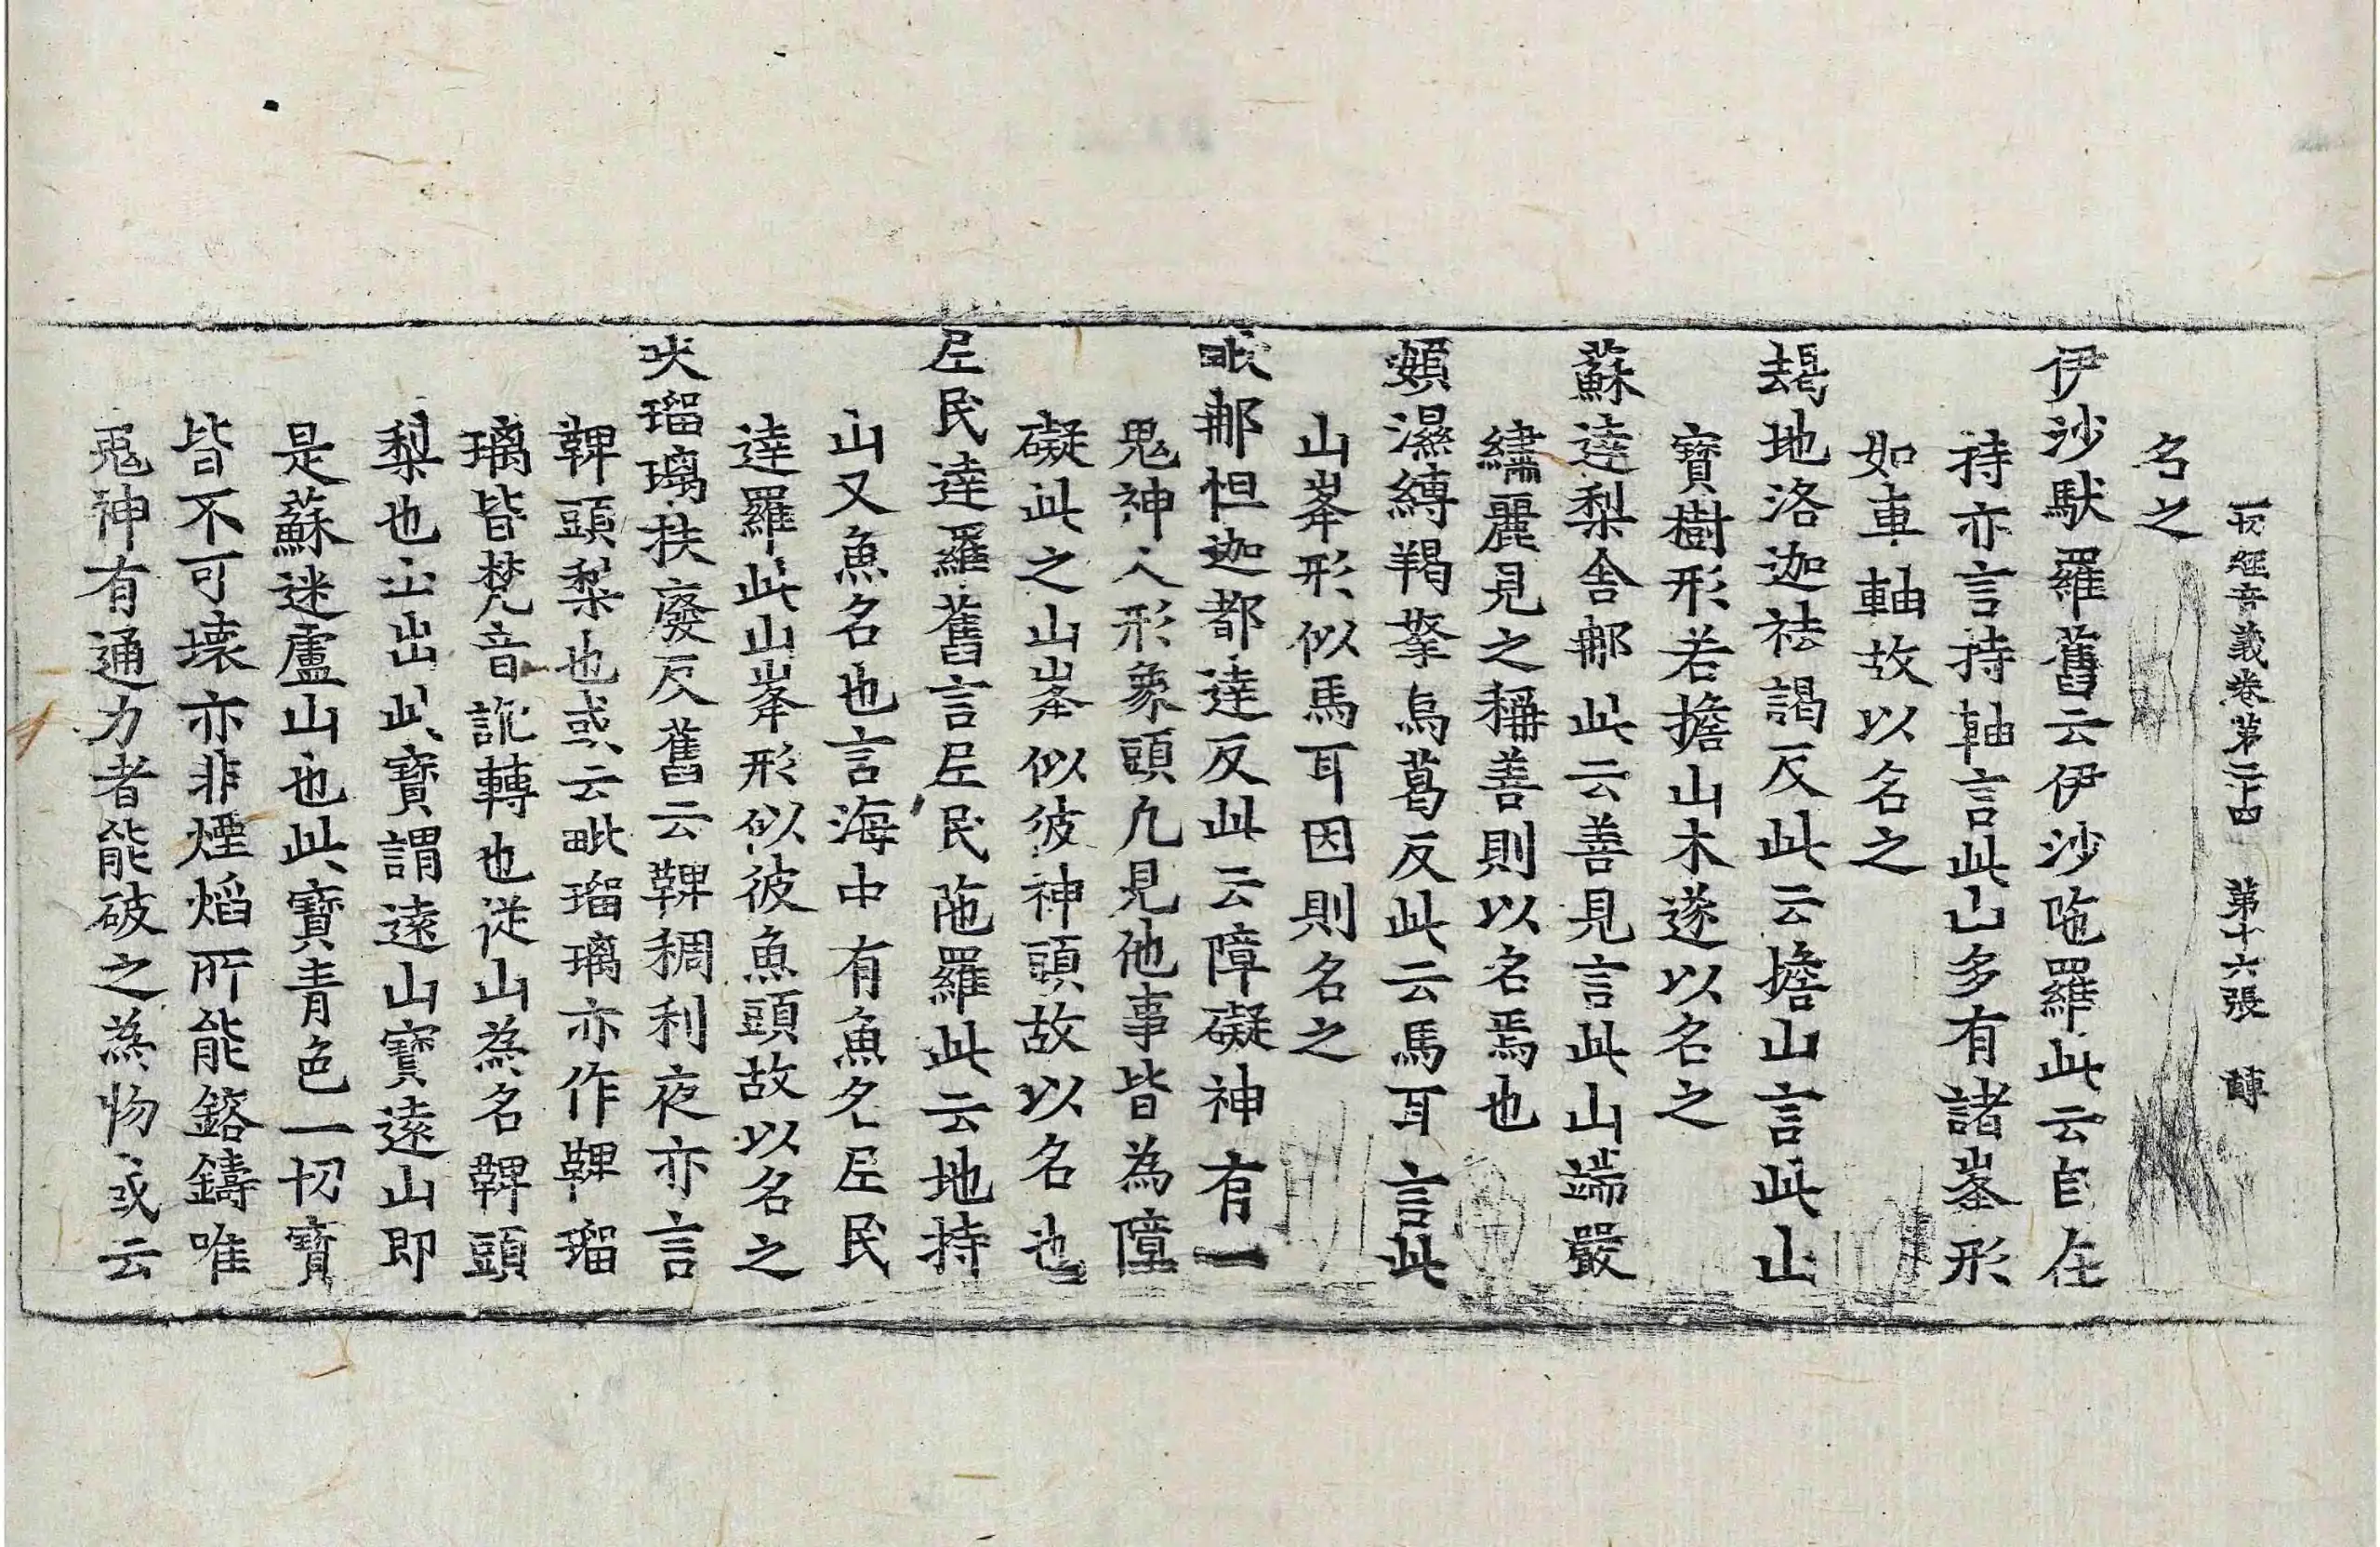 一切經音義卷第二十四 第十六張
名之
伊沙馱羅舊云伊沙陁羅此云自在
持亦言持軸言此山多有諸峯形
如車軸故以名之
朅地洛迦祛謁反此云擔山言此山
寶樹形若擔山木遂以名之
蘇達梨舍那此云善見言此山端嚴
繡麗見之稱善則以名焉也
頞濕縛羯拏烏葛反此云馬耳言此
山峯形似馬耳因則名之
毗那怛迦都達反此云障礙神有一
鬼神人形象頭凢見他事皆為障
礙此之山峯似彼神頭故以名也
尼民達羅舊言尼民陁羅此云地持
山又魚名也言海中有魚名尼民
達羅此山峯形似彼魚頭故以名之
吠瑠璃扶廢反舊云鞞稠利夜亦言
鞞頭梨也或云毗瑠璃亦作鞞瑠
璃皆梵音訛轉也從山為名鞞頭
梨也山出此寶謂遠山寶遠山即
是蘇迷盧山也此寶青色一切寶
皆不可壞亦非煙焰所能鎔鑄唯
鬼神有通力者能破之為物或云